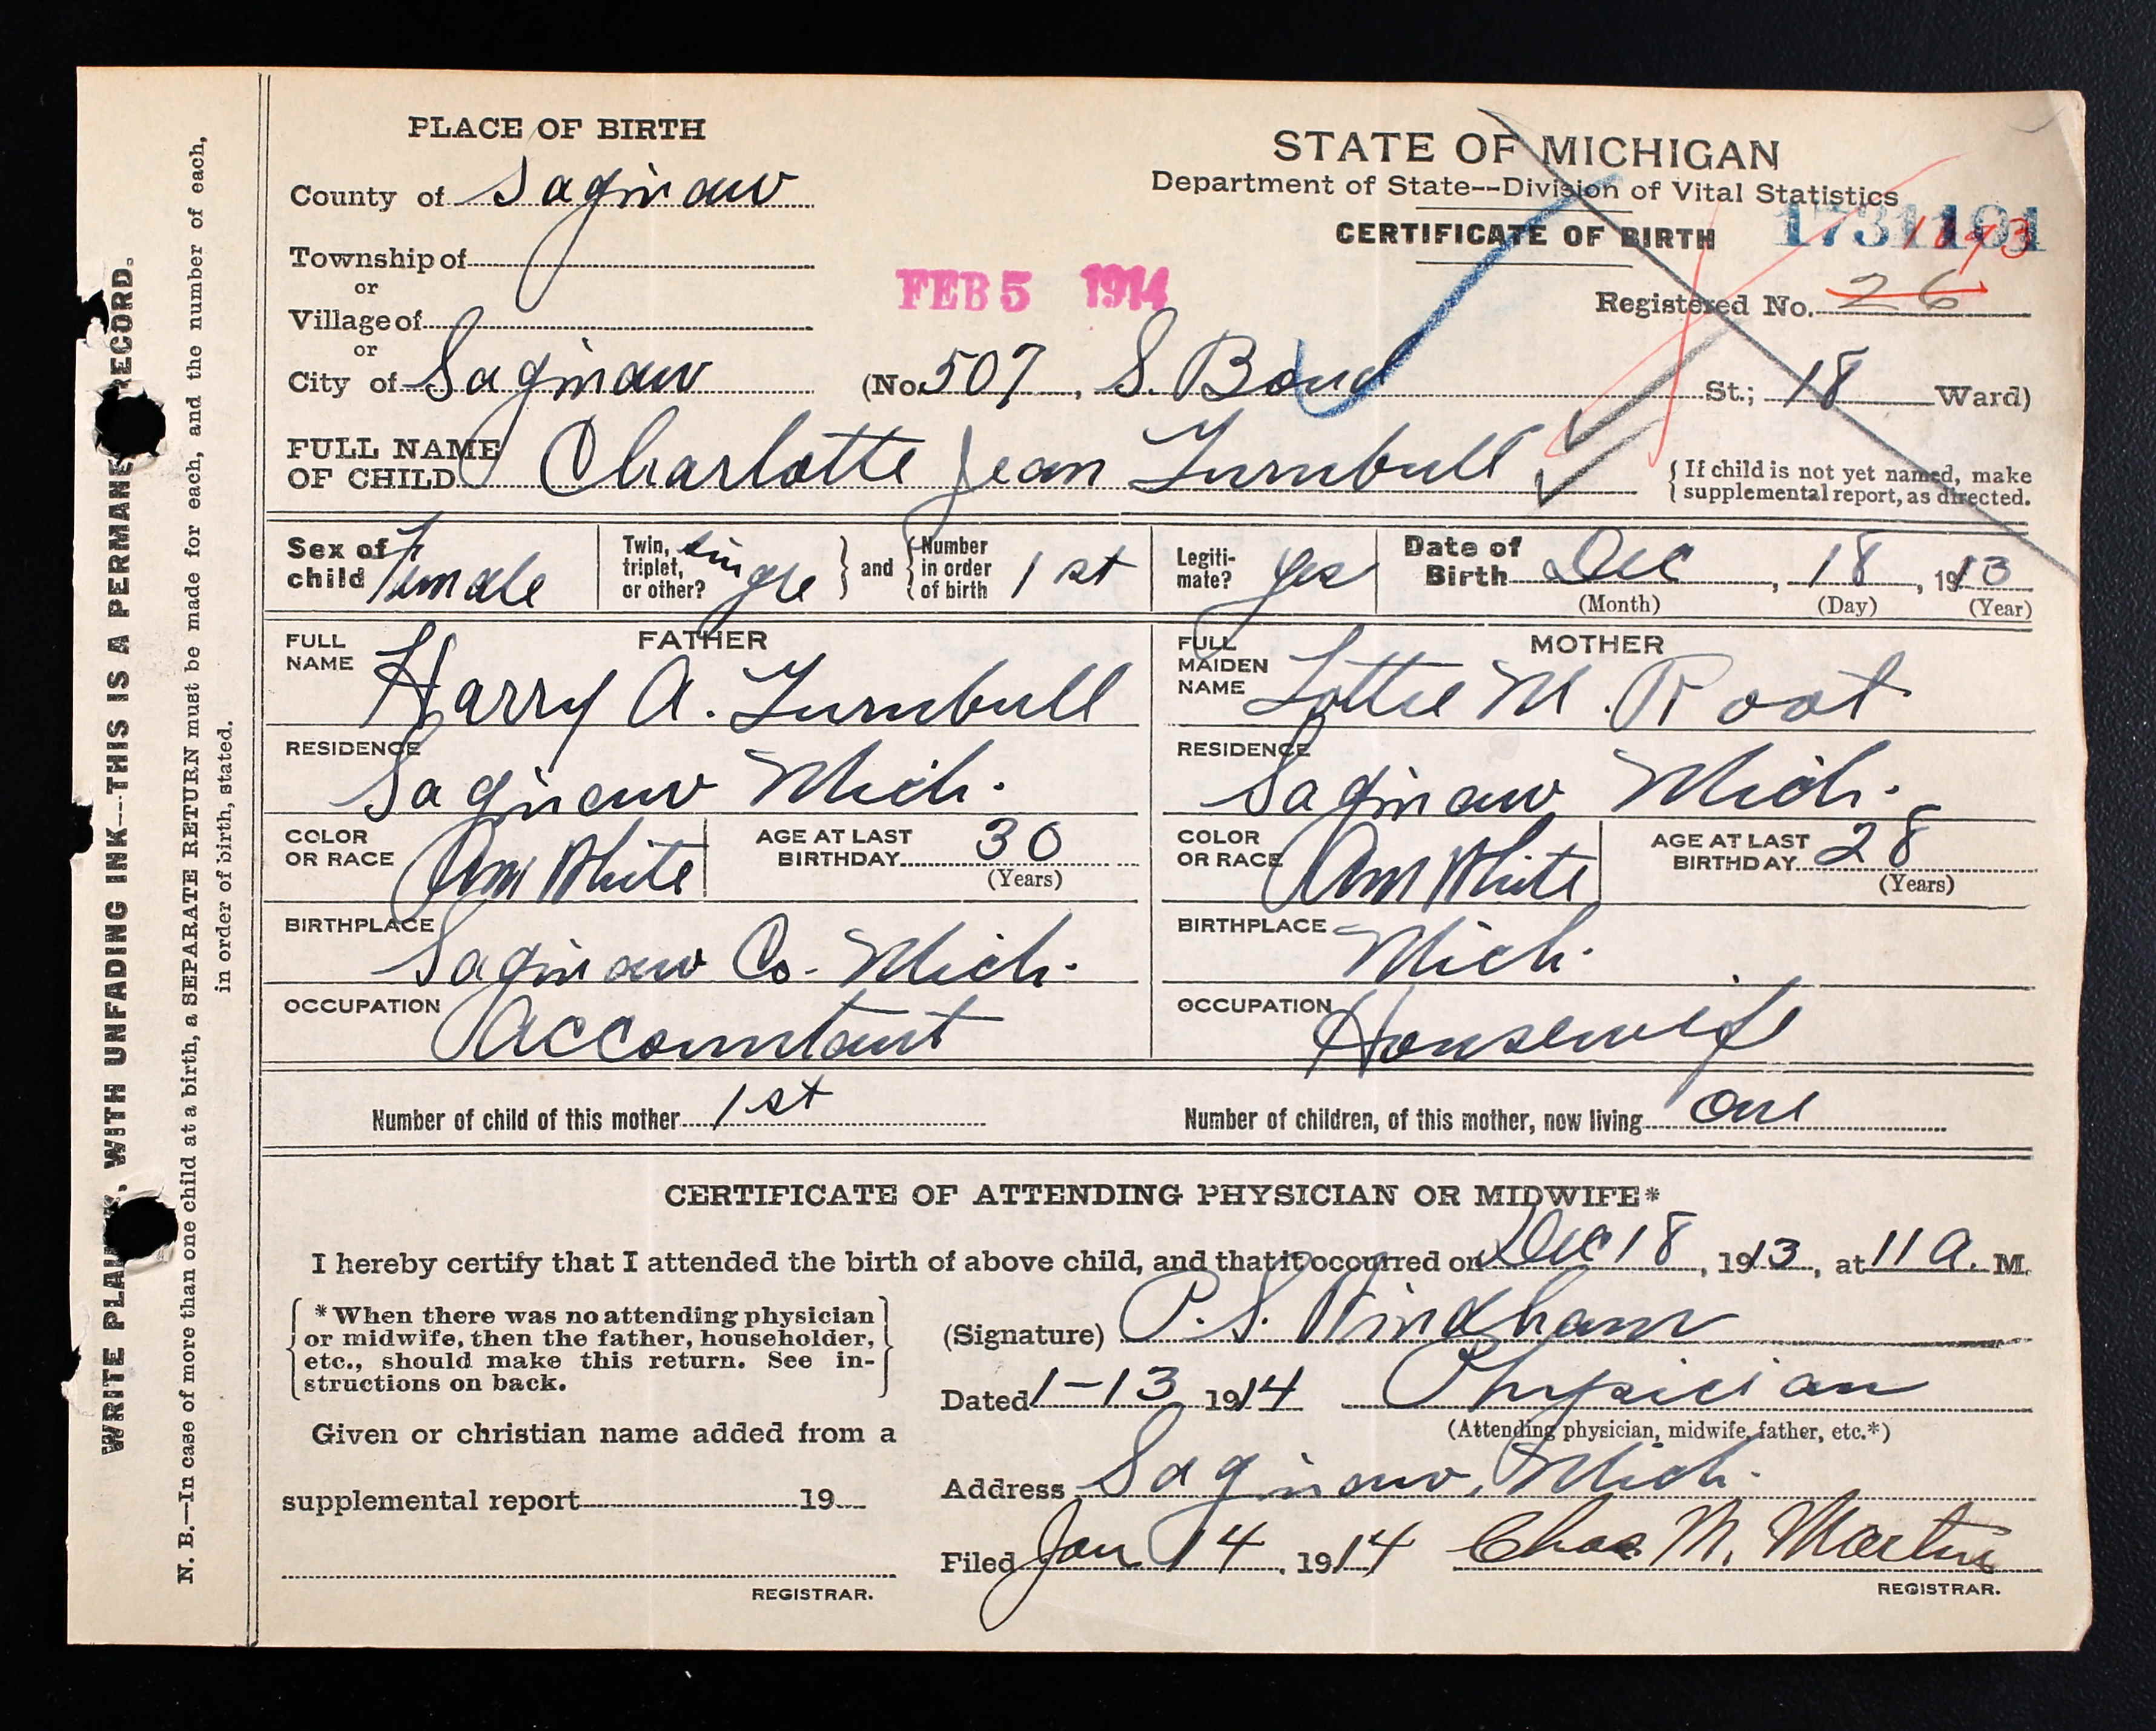 WRITE PLAINLY, WITH UNFADING INK---THIS IS A PERMANENT RECORD.
N. B.—In case of more than one child at a birth, a SEPARATE RETURN must be made for each, and the number of each,
in order of birth, stated.
PLACE OF BIRTH
County of Saginaw
Township of
or
Village of
or
City of Saginaw
STATE OF MICHIGAN
Department of State--Division of Vital Statistics
CERTIFICATE OF BIRTH
FEB 5 1914
Registered No. 26
(No. 507, S. Bond St.; 18 Ward)
FULL NAME
OF CHILD Charlotte Jean Turnbull
{ If child is not yet named, make
supplemental report, as directed.
Sex of child Female
Twin, triplet, or other? Single } and { Number in order of birth 1st
Legiti-mate? yes
Date of Birth Dec, 18, 1913
(Month) (Day) (Year)
FATHER
FULL NAME Harry A. Turnbull
RESIDENCE Saginaw Mich.
COLOR OR RACE Am White
AGE AT LAST BIRTHDAY 30
(Years)
BIRTHPLACE Saginaw Co. Mich.
OCCUPATION Accountant
MOTHER
FULL MAIDEN NAME Lottie M. Root
RESIDENCE Saginaw Mich.
COLOR OR RACE Am White
AGE AT LAST BIRTHDAY 28
(Years)
BIRTHPLACE Mich.
OCCUPATION Housewife
Number of child of this mother 1st
Number of children, of this mother, now living One
CERTIFICATE OF ATTENDING PHYSICIAN OR MIDWIFE*
I hereby certify that I attended the birth of above child, and that it occurred on Dec 18, 1913, at 11 A. M.
{ *When there was no attending physician
or midwife, then the father, householder,
etc., should make this return. See in-
structions on back. }
Given or christian name added from a
supplemental report 19
REGISTRAR.
(Signature) P. S. Windham
Dated 1-13 1914 Physician
(Attending physician, midwife, father, etc.*)
Address Saginaw, Mich.
Filed Jan 14, 1914 Chas. M. Martin
REGISTRAR.